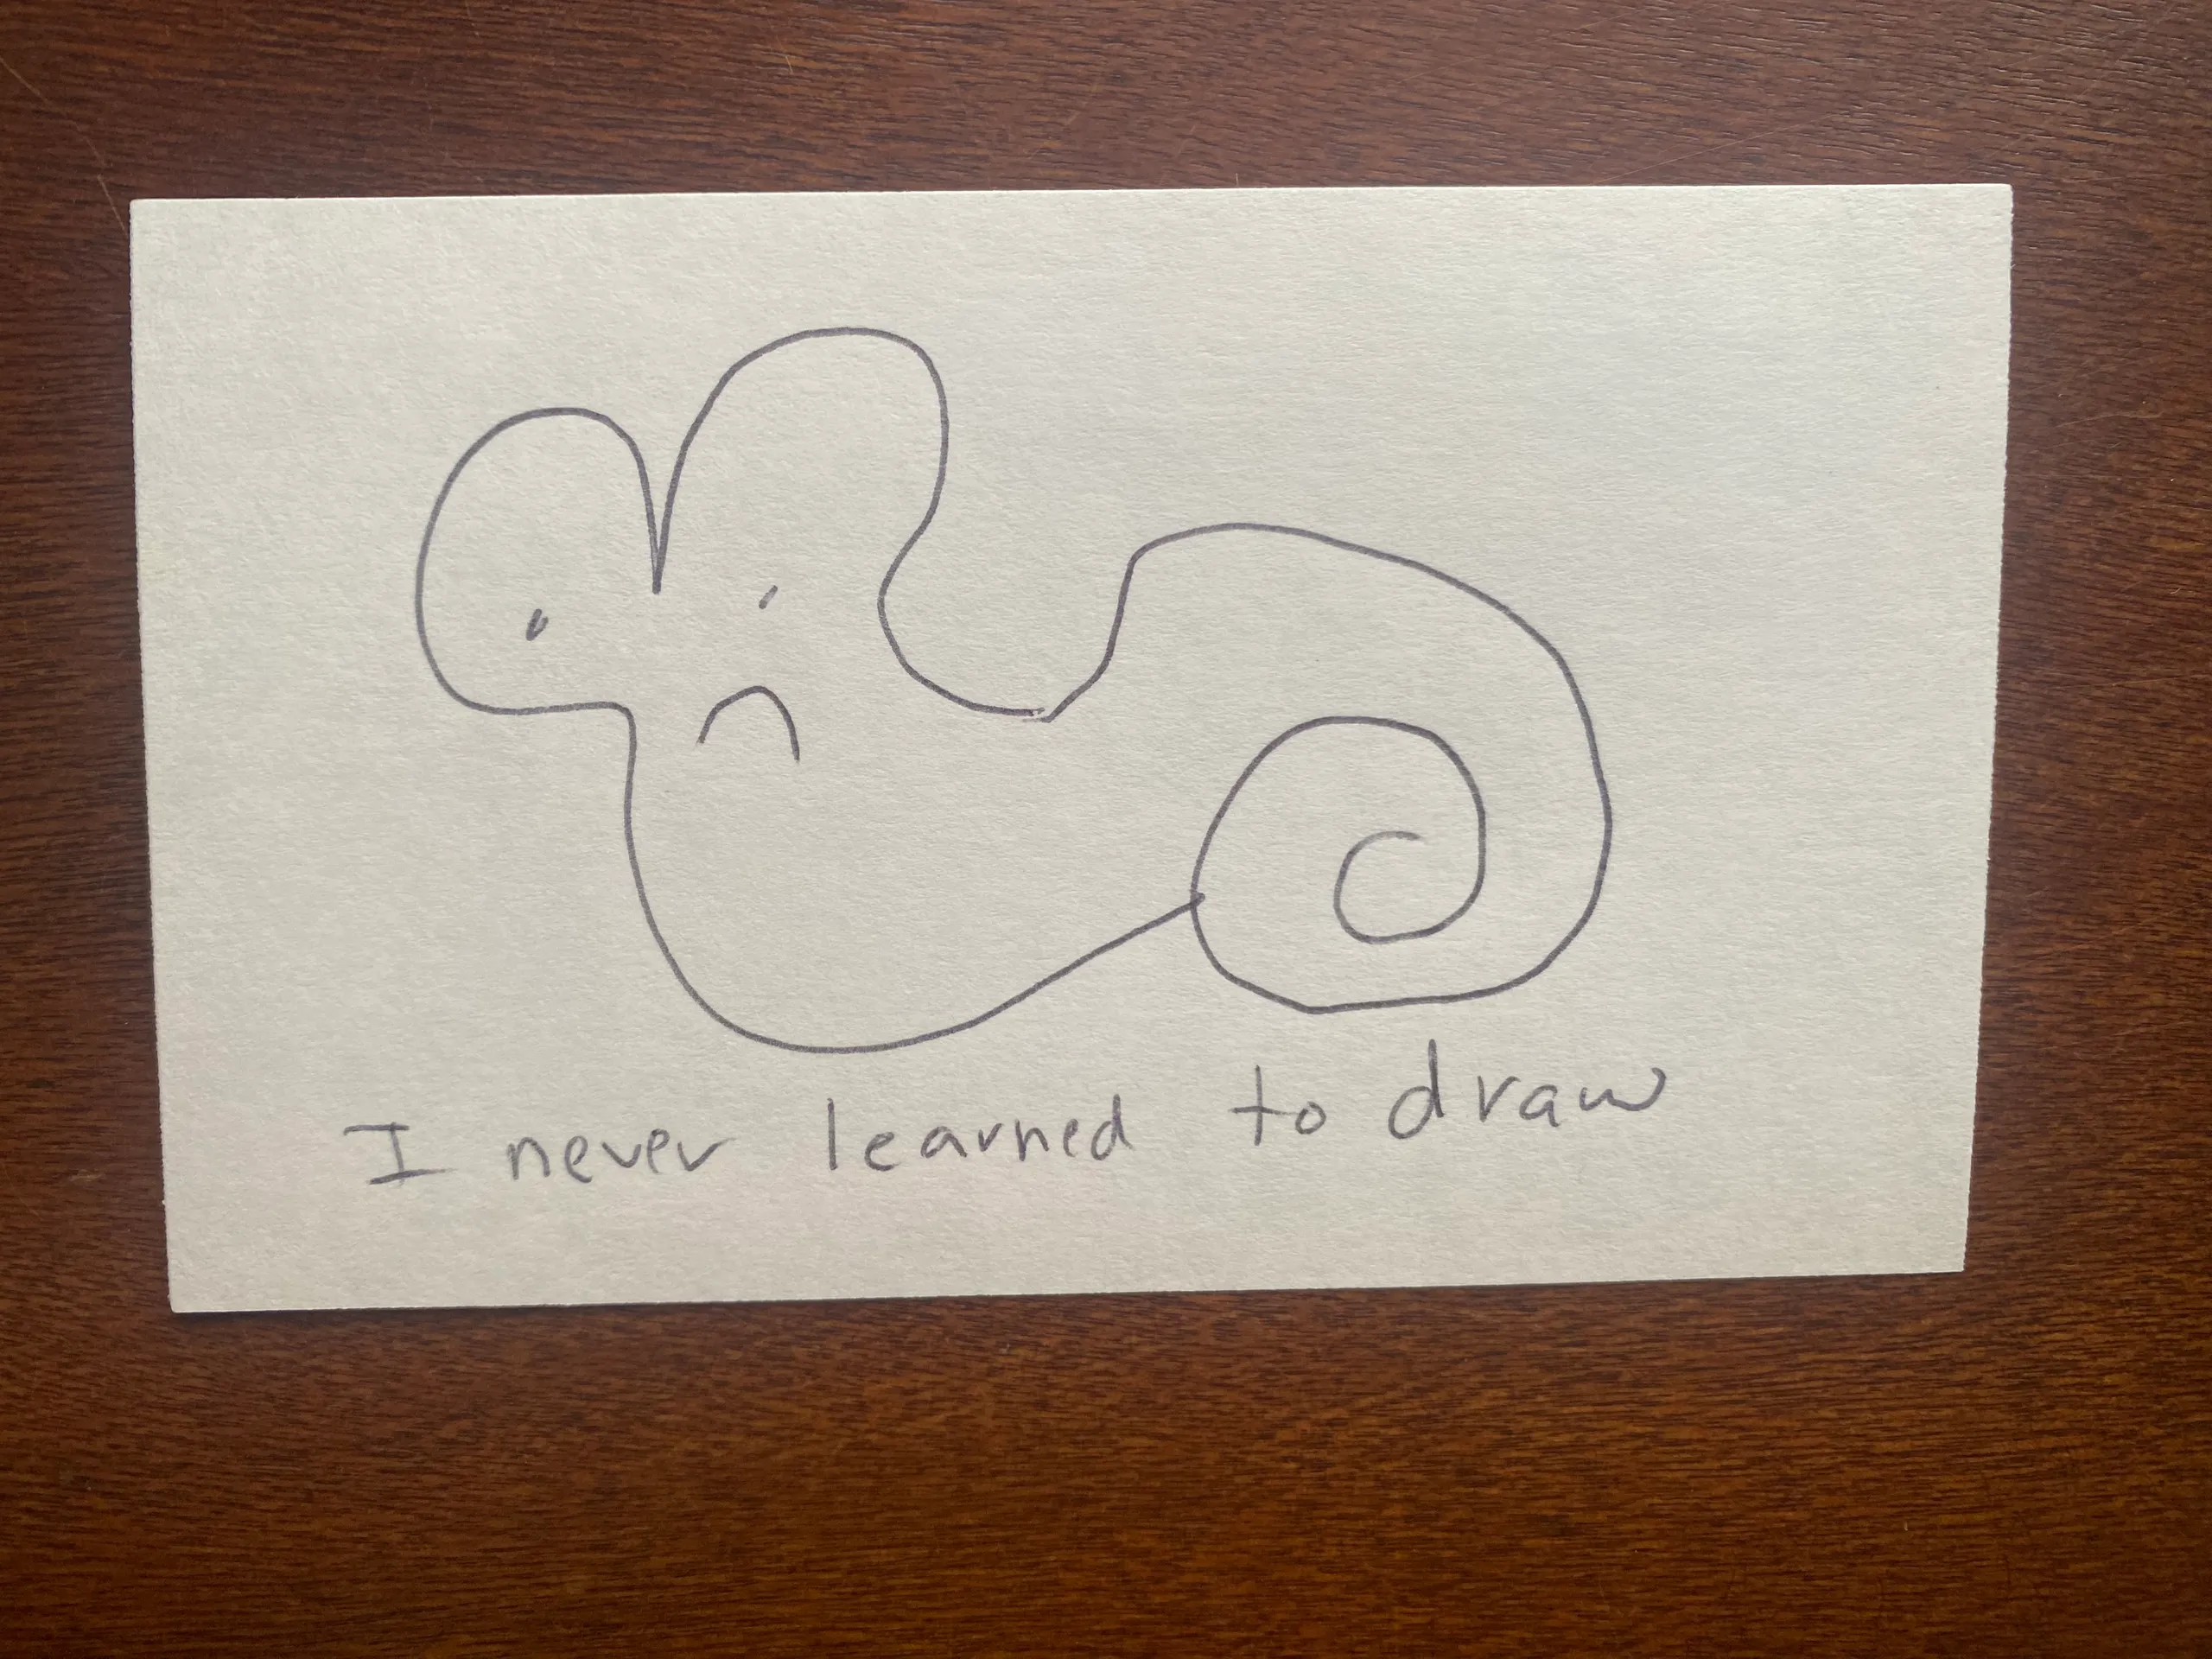 I never learned to draw